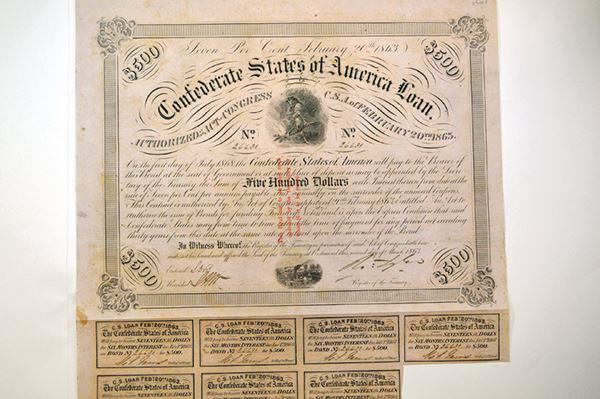 Seven Per Cent February 20th 1863
$500 $500
Confederate States of America Loan.
AUTHORIZED by ACT of CONGRESS C.S.A. of FEBRUARY 20TH 1863.
No No
26631 26631
On the first day of July 1868 the Confederate States of America will pay to the Bearer of
this Bond at the seat of Government or at such place of deposit as may be appointed by the Secre
tary of the Treasury the Sum of Five Hundred Dollars with Interest thereon at the
rate of Seven per Cent per annum payable semi annually on the surrender of the annexed Coupons.
This Contract is authorized by an Act of Congress approved February 1863 entitled An Act to
authorize the issue of Bonds for funding Treasury Notes and is upon the Express Condition that said
Confederate States may from time to time extend the time of payment for any period not exceeding
Thirty years from this date at the same rate of Interest upon the surrender of this Bond
In Witness Whereof, the Register of the Treasury in pursuance of said Act of Congress hath here
unto set his hand and affixed the Seal of the Treasury at Richmond this
Register of the Treasury
Entered
Recorded
$500 $500
C.S. LOAN FEBY 20TH 1863.
The Confederate States of America
Will pay to bearer SEVENTEEN 50/100 DOLL'S
for SIX MONTHS INTEREST due
on BOND No 26631 for $500.
C.S. LOAN FEBY 20TH 1863.
The Confederate States of America
Will pay to bearer SEVENTEEN 50/100 DOLL'S
for SIX MONTHS INTEREST due
on BOND No 26631 for $500.
C.S. LOAN FEBY 20TH 1863.
The Confederate States of America
Will pay to bearer SEVENTEEN 50/100 DOLL'S
for SIX MONTHS INTEREST due
on BOND No 26631 for $500.
C.S. LOAN FEBY 20TH 1863.
The Confederate States of America
Will pay to bearer SEVENTEEN 50/100 DOLL'S
for SIX MONTHS INTEREST due
on BOND No 26631 for $500.
C.S. LOAN FEBY 20TH 1863.
The Confederate States of America
Will pay to bearer SEVENTEEN 50/100 DOLL'S
C.S. LOAN FEBY 20TH 1863.
The Confederate States of America
Will pay to bearer SEVENTEEN 50/100 DOLL'S
C.S. LOAN FEBY 20TH 1863.
The Confederate States of America
Will pay to bearer SEVENTEEN 50/100 DOLL'S